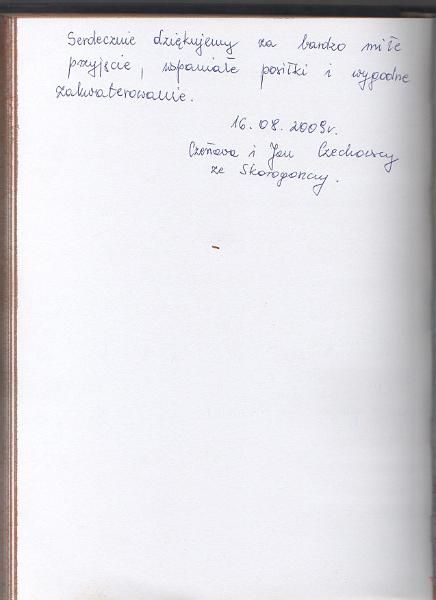 Serdecznie dziękujemy za bardzo miłe
przyjęcie, wspaniałe posiłki i wygodne
zakwaterowanie.
16.08.2009r.
i Jan Czechowscy
ze